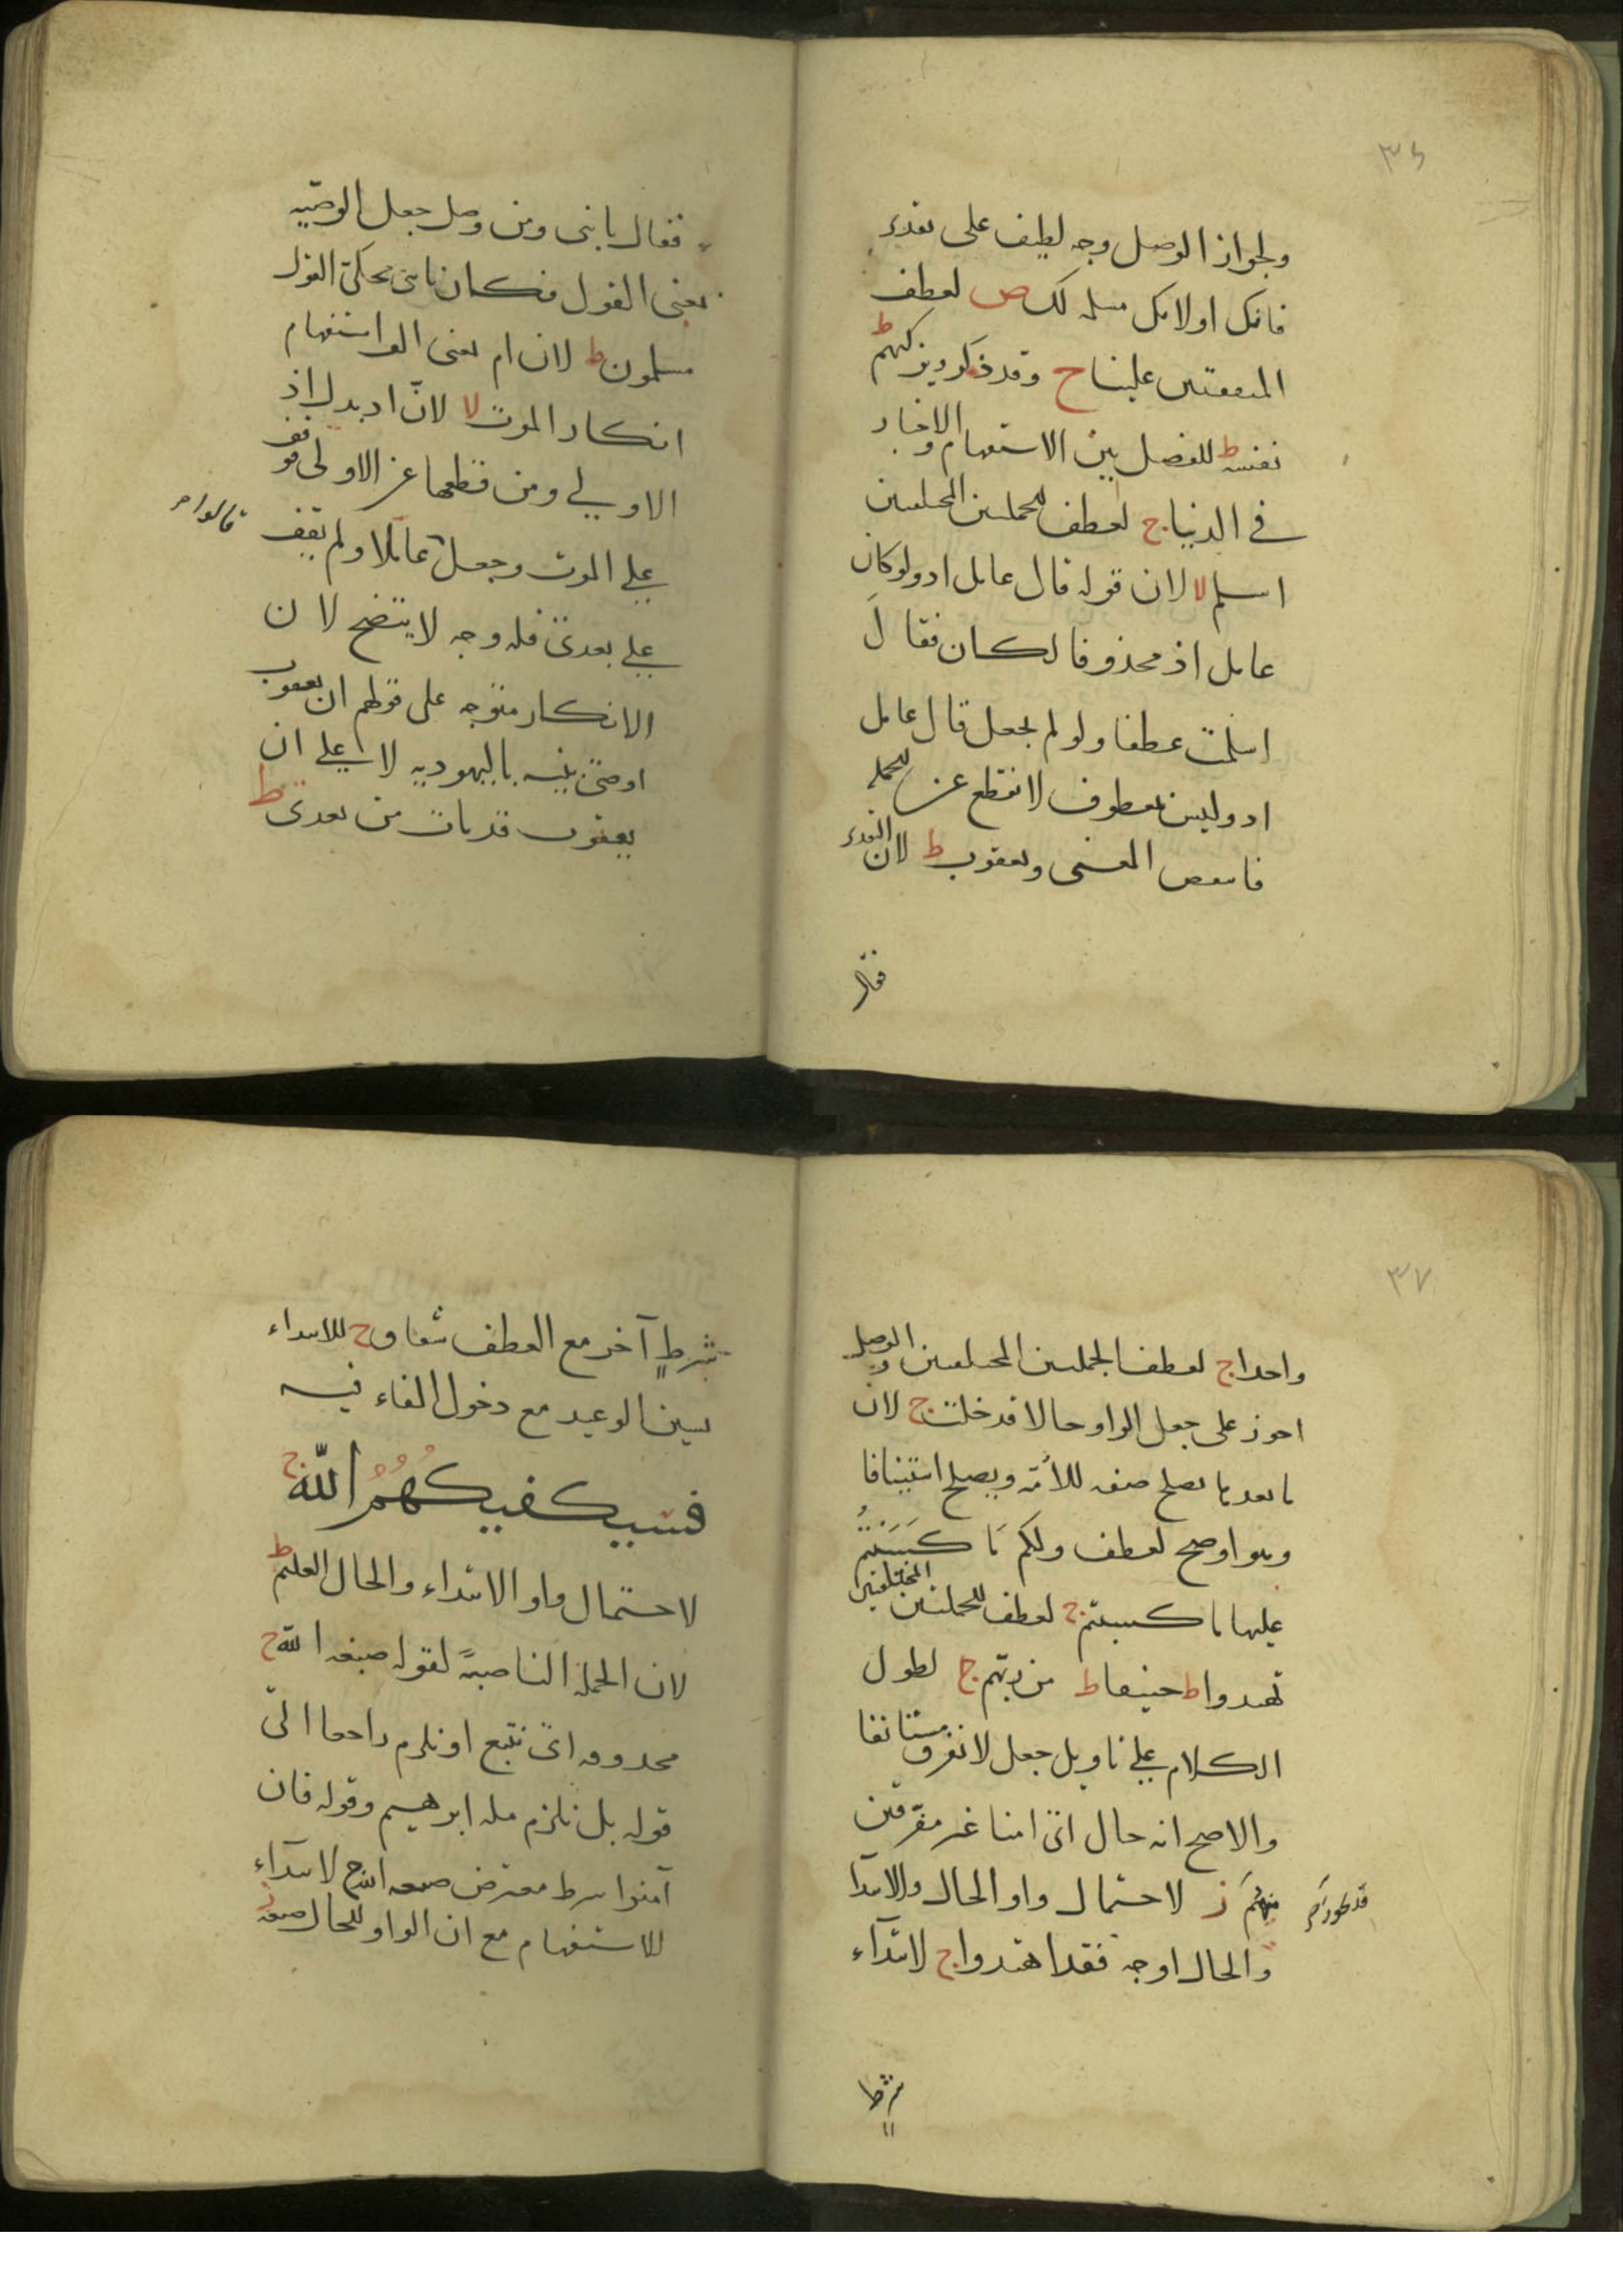 ٣٦
ولجواز الوصل وجه لطيف على تقدير
فانك اولانك مسلمه لك ص لعطف
المتفقتين علينا ج وقد ذكر ويزكيهم ط
نفسه ط للفصل بين الاستفهام والاخبار
في الدنيا ج لعطف الجملتين المختلفتين
اسلم لا لان قوله قال عامل اذ ولو كان
عامل اذ محذوفا لكان فقال
اسلمت عطفا ولو لم يجعل قال عامل
اذ وليس بمعطوف لانقطع عن الجملة
المعنى ويعقوب ط لان التقدير
فقال
فقال يا بنى ومن وصل جعل الوصية
بمعنى القول فكان يا بنى محكى القول
مسلمون ط لان ام بمعنى الف استفهام
انكار الموت لا لان اذ بدل اذ
الاولي ومن قطعها عن الاولى وقف
على الموت وجعل عاملا ولم يقف قالوا
على بعدى فله وجه لا يتضح لان
الانكار متوجه على قولهم ان يعقوب
اوصى بنيه باليهوديه لا على ان
يعقوب قد مات من بعدى ط
٣٧
واحدا ج لعطف الجملتين المختلفتين والوصل
اجوز على جعل الواو حالا قد خلت ج لان
ما بعدها يصلح صفه للأمة ويصلح استينافا
وهو اوضح لعطف ولكم مَا كَسَبْتُمْ
عليها ما كسبتم ج لعطف الجملتين المختلفتين
تهتدوا ط حنيفا ط من ربهم ج لطول
الكلام على تاويل جعل لا نفرق مستانفا
والاصح انه حال اى امنا غير مفرقين
منهم ز لاحتمال واو الحال والابتدا
والحال اوجه فقد اهتدوا ج لابتداء
شرط
شرطٍ آخر مع العطف شقاق ج للابتداء
بسين الوعيد مع دخول الفاء فيه
فسيكفيكهم الله ج
لاحتمال واو الابتداء والحال العليم ط
لان الجملة الناصبة لقوله صبغه الله ج
محذوفه اى نتبع او نلزم راجعا الى
قوله بل نلزم مله ابرهيم وقوله فان
آمنوا شرط معترض صبغه الله ج لابتداء
للاستفهام مع ان الواو للحال صبغة ز